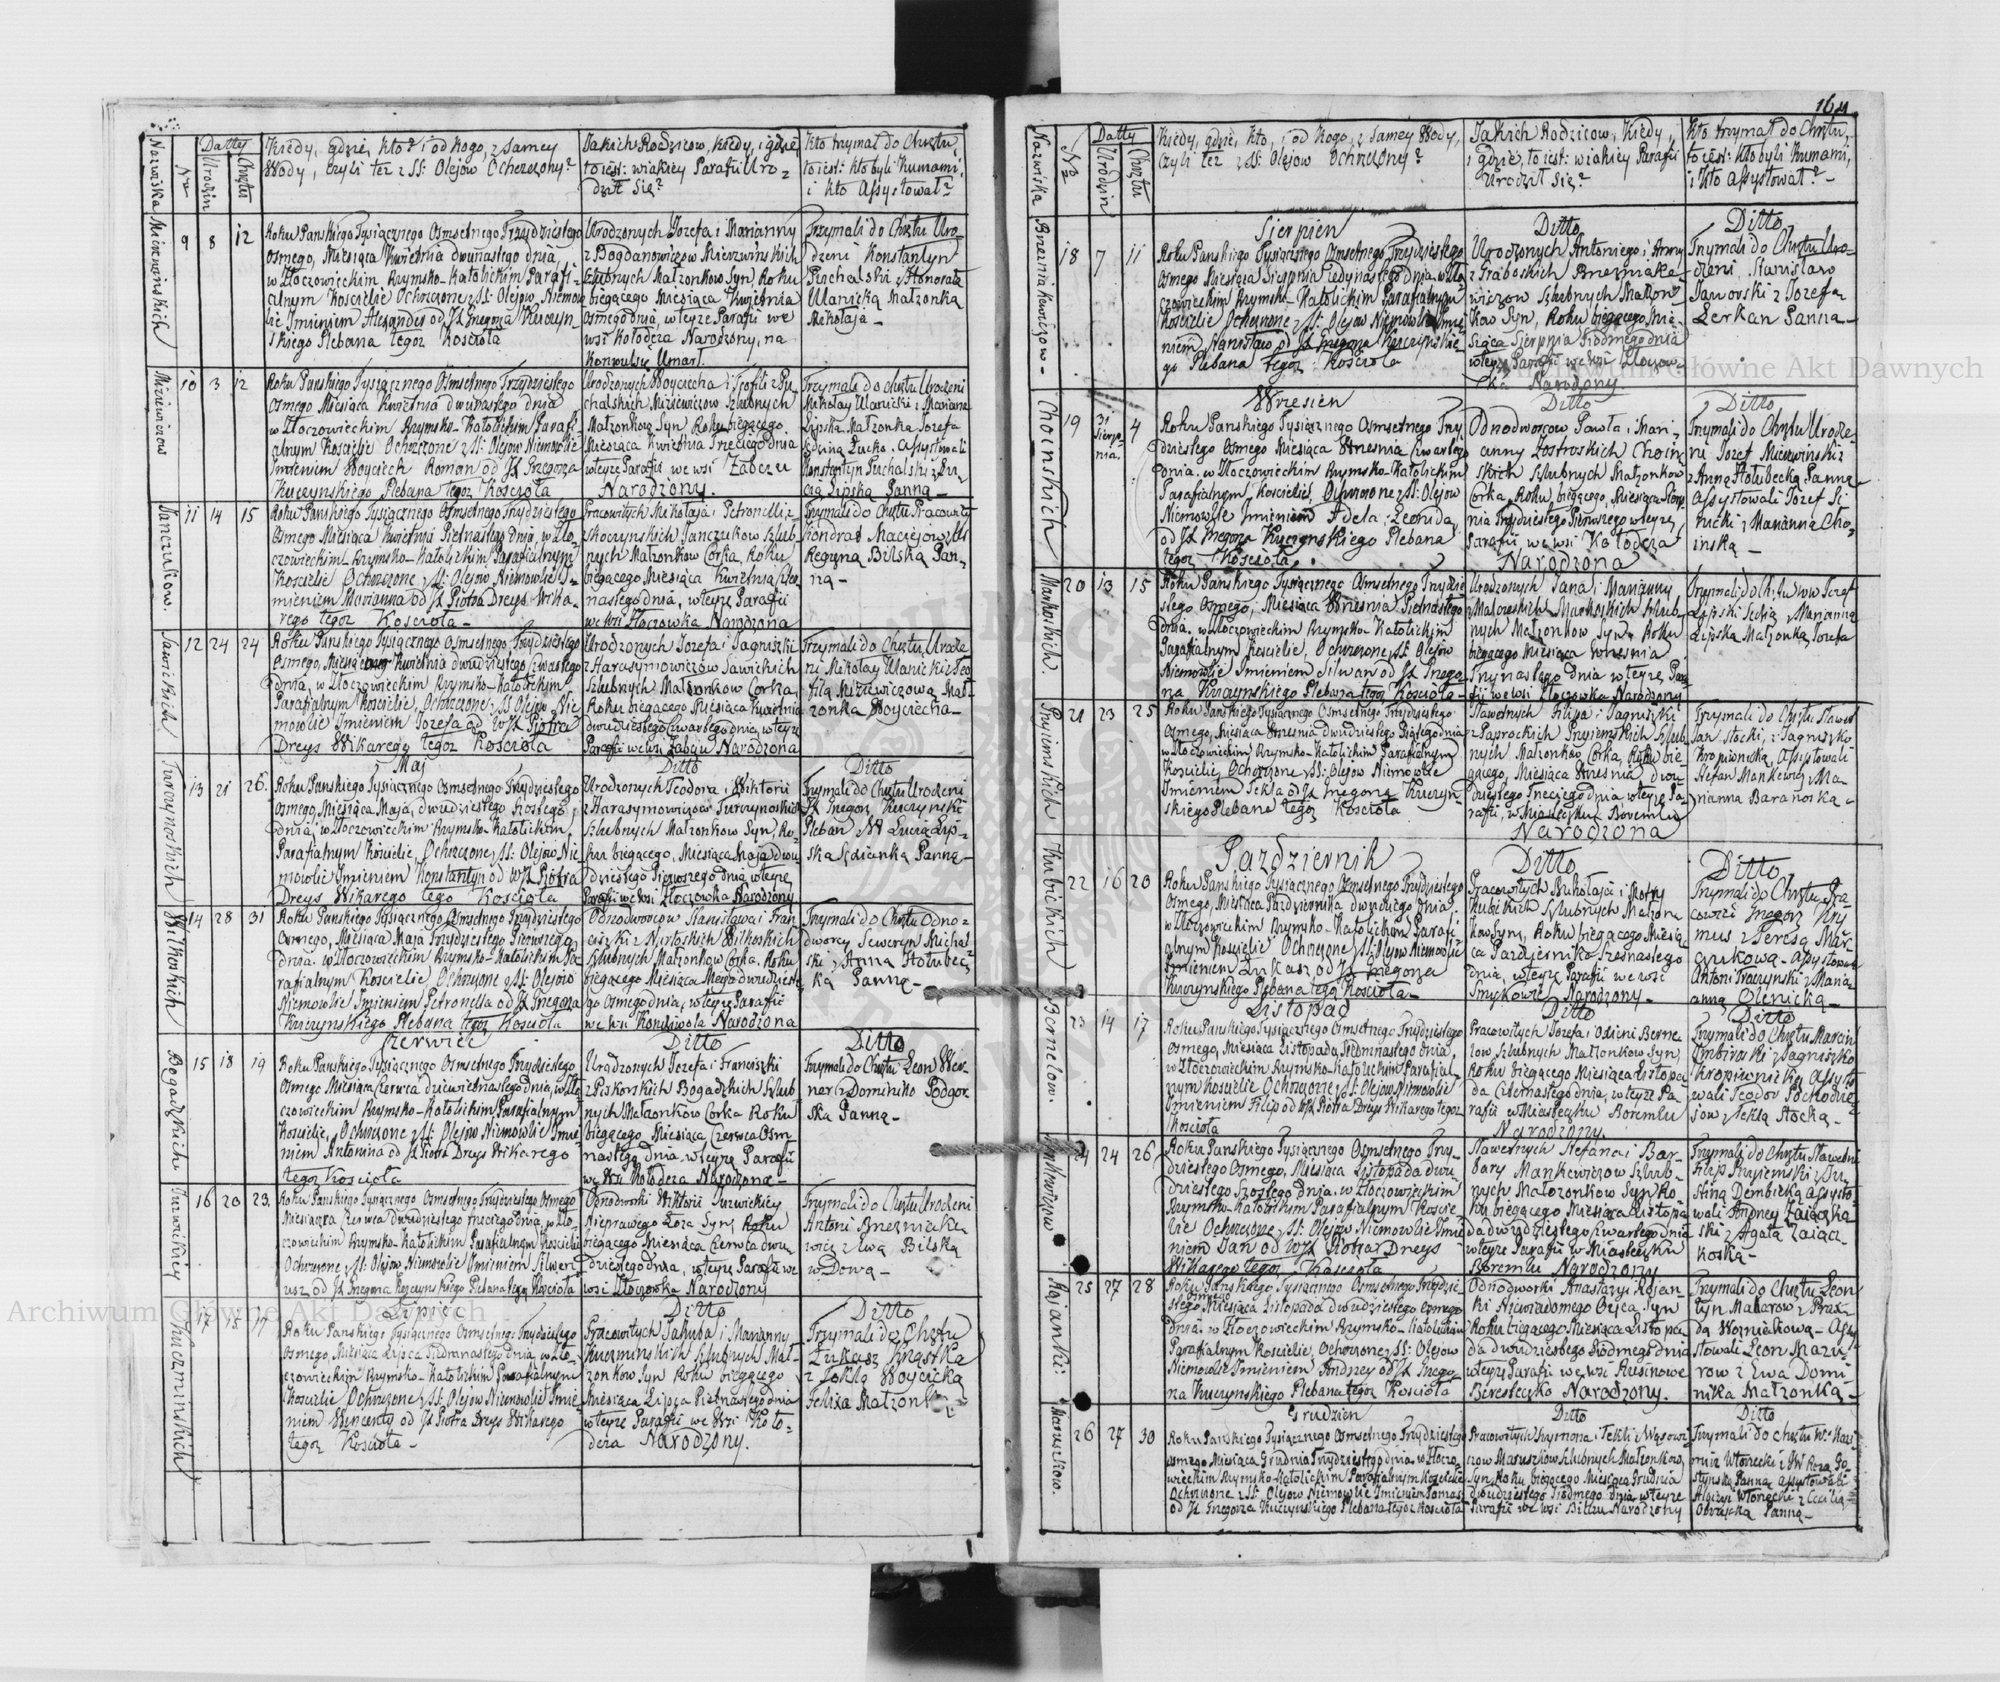 164
Nazwiska
Nro
Datty
Urodzin
Chrztu
Kiedy, gdzie, kto? i od kogo, z samey
Wody, czyli też z SS: Olejow Ochrzczony?
Jakich Rodzicow, kiedy, i gdzie,
to iest: w iakiey Parafii Uro-
dził się?
Kto trzymał do Chrztu,
to iest: kto byli Kumami,
i kto Assystował?
Mierzwinskich
9 8 12
Roku Panskiego Tysiącznego Osmsetnego Trzydziestego
Osmego, Miesiąca Kwietnia dwunastego dnia,
w Złoczowieckim Rzymsko-Katolickim Parafi-
alnym Kosciele Ochrzczone z SS: Olejow Niemow-
le Imieniem Alexander od JX Grzegorza Kuczyn-
skiego Plebana tegoz Kosciola
Urodzonych Jozefa i Marianny
z Bogdanowiczow Mierzwinskich
Szlubnych Malzonkow Syn, Roku
biegącego Miesiąca Kwietnia
Osmego dnia, w teyze Parafii we
wsi Kołodeza Narodzony, na
Konwulsye Umarł
Trzymali do Chrztu Uro-
dzeni Konstantyn
Puchalski z Honoratą
Ulanicką Malzonką
Mikołaja -
Miziewiczow
10 3 12
Roku Panskiego Tysiącznego Osmsetnego Trzydziestego
Osmego Miesiąca Kwietnia dwunastego dnia
w Złoczowieckim Rzymsko-Katolickim Parafi-
alnym Kosciele Ochrzczone z SS: Olejow Niemowle
Imieniem Woyciech Roman od JX Grzegorza
Kuczynskiego Plebana tegoz Kosciola
Urodzonych Woyciecha i Teofili z Pu-
chalskich Miziewiczow Szlubnych
Malzonkow Syn, Roku biegącego
Miesiąca Kwietnia Trzeciego dnia
w teyze Parafii we wsi Zabczu
Narodzony.
Trzymali do Chrztu Urodzeni
Mikołay Ulanicki z Marianną
Lipską Malzonką Jozefa
Assystowali
Konstantyn Puchalski z Lu-
cią Lipską Panną -
Janczukow.
11 14 15
Roku Panskiego Tysiącznego Osmsetnego Trzydziestego
Osmego Miesiąca Kwietnia Pietnastego Dnia, w Zło-
czowieckim Rzymsko-Katolickim Parafialnym
Kosciele Ochrzczone z SS: Olejow Niemowle I-
mieniem Marianna od JX Piotra Dreys Wika-
rego tegoz Kosciola -
Pracowitych Mikołaja i Petronelli z
Skoczynskich Janczukow Szlub-
nych Malzonkow Corka, Roku
biegącego Miesiąca Kwietnia Czter-
nastego dnia, w teyze Parafii
we Wsi Złoczowka Narodzona
Trzymali do Chrztu Pracowity
Kondrat Maciejowski
Reginą Bilską Pan-
ną -
Sawickich
12 24 24
Roku Panskiego Tysiącznego Osmsetnego Trzydziestego
Osmego, Miesiąca Kwietnia dwudziestego Czwartego
dnia, w Złoczowieckim Rzymsko-Katolickim
Parafialnym Kosciele, Ochrzczone z SS: Olejow Nie-
mowle Imieniem Jozefa od WJX Piotra
Dreys Wikarego tegoz Kosciola
Urodzonych Jozefa i Jagniszki
z Harasymowiczow Sawickich
Szlubnych Malzonkow Corka,
Roku biegącego Miesiąca Kwietnia
dwudziestego Czwartego dnia, w teyze
Parafii we wsi Zabczu Narodzona
Trzymali do Chrztu Urodze-
ni Mikołay Ulanicki z Teo-
filą Miziewiczową Mał-
zonką Woyciecha -
Turczynoskich
Maj
Ditto
Ditto
13 21 26.
Roku Panskiego Tysiącznego Osmsetnego Trzydziestego
Osmego, Miesiąca Maja, dwudziestego Szostego
dnia, w Złoczowieckim Rzymsko-Katolickim
Parafialnym Kosciele, Ochrzczone z SS: Olejow Nie-
mowle Imieniem Konstantyn od WJX Piotra
Dreys Wikarego tego Kosciola
Urodzonych Teodora i Wiktorii
z Harasymowiczow Turczynoskich
Szlubnych Malzonkow Syn, Ro-
ku biegącego, Miesiąca Maja dwu-
dziestego Pierwszego dnia, w teyze
Parafii we Wsi Złoczowka Narodzony
Trzymali do Chrztu Urodzeni
JX Grzegorz Kuczynski
Pleban z Lucią Lip-
ską Sędzianką Panną -
Wilkoskich
14 28 31
Roku Panskiego Tysiącznego Osmsetnego Trzydziestego
Osmego, Miesiąca Maja Trzydziestego Pierwszego
dnia. w Złoczowieckim Rzymsko-Katolickim Pa-
rafialnym Kosciele, Ochrzczone z SS: Olejow
Niemowle Imieniem Petronella od JX Grzegorza
Kuczynskiego Plebana tegoz Kosciola
Odnodworcow Stanisława i Fran-
ciszki z Wilkoskich
Szlubnych Malzonkow Corka. Roku
biegącego Miesiąca Maja dwudzieste-
go Osmego dnia, w teyze Parafii
we Wsi Narodzona
Trzymali do Chrztu Odno-
dworcy Seweryn Michal-
ski z Anną Hołubec-
ką Panną -
Bogadzkich
Czerwiec
Ditto
Ditto
15 18 19
Roku Panskiego Tysiącznego Osmsetnego Trzydziestego
Osmego Miesiąca Czerwca dziewietnastego dnia, w Zło-
czowieckim Rzymsko-Katolickim Parafialnym
Kosciele, Ochrzczone z SS: Olejow Niemowle Imie-
niem Antonina od JX Piotra Dreys Wikarego
tegoz Kosciola
Urodzonych Jozefa i Franciszki
z Piskorskich Bogadzkich Szlub-
nych Malzonkow Corka Roku
biegącego Miesiąca Czerwca Osm-
nastego dnia, w teyze Parafii
we Wsi Kołodeza Narodzona -
Trzymali do Chrztu Leon Wer-
ner z Dominiką Podgor-
ską Panną -
Jurwickiey
16 20 23.
Roku Panskiego Tysiącznego Osmsetnego Trzydziestego Osmego
Miesiąca Czerwca dwudziestego trzeciego Dnia, w Zło-
czowieckim Rzymsko-Katolickim Parafialnym Kosciele
Ochrzczone z SS: Olejow Niemowle Imieniem Silwery-
usz od JX Grzegorza Kuczynskiego Plebana tegoz Kosciola
Odnodworki Wiktorii Jurwickiey
Nieprawego Łoza Syn, Roku
biegącego Miesiąca Czerwca dwu-
dziestego dnia, w teyze Parafii we
wsi Złoczowka Narodzony
Trzymali do Chrztu Urodzeni
Antoni Brezniake-
wicz z Ewą Bilską
wdową -
Kuczminskich
Lipiec
Ditto
Ditto
17 15 17
Roku Panskiego Tysiącznego Osmsetnego Trzydziestego
Osmego, Miesiąca Lipca Siedmnastego Dnia, w Zło-
czowieckim Rzymsko-Katolickim Parafialnym
Kosciele Ochrzczone z SS: Olejow Niemowle Imie-
niem Wincenty od JX Piotra Dreys Wikarego
tegoz Kosciola -
Pracowitych Jakuba i Marianny
Kuczminskich Szlubnych Mal-
zonkow Syn Roku biegącego
Miesiąca Lipca Pietnastego dnia
w teyze Parafii we Wsi Koło-
deza Narodzony.
Trzymali do Chrztu
Łukasz Chrąstka
z Teklą Woycicką
Felixa Malzonką
Nazwiska
Nro
Datty
Urodzin
Chrztu
Kiedy, gdzie, kto, i od kogo, z samey Wody,
czyli też z SS: Olejow Ochrzczony?
Jakich Rodzicow, kiedy,
i gdzie, to iest: w iakiey Parafii
Urodził się?
Kto trzymał do Chrztu,
to iest: kto byli Kumami,
i kto Assystował? -
Brezniakewiczow -
Sierpien
Ditto
Ditto
18 7 11
Roku Panskiego Tysiącznego Osmsetnego Trzydziestego
Osmego Miesiąca Sierpnia Jedynastego Dnia, w Zło-
czowieckim Rzymsko-Katolickim Parafialnym
Kosciele Ochrzczone z SS: Olejow Niemowle Imie-
niem Stanisław od JX Grzegorza Kuczynskie-
go Plebana tegoz Kosciola
Urodzonych Antoniego i Anny
z Graboskich Brezniake-
wiczow Szlubnych Malzon-
kow Syn, Roku biegącego Mie-
siąca Sierpnia Siodmego dnia
w teyze Parafii we Wsi Złoczow-
ka Narodzony.
Trzymali do Chrztu Uro-
dzeni Stanisław
Jaworski z Jozefą
Zerkan Panną -
Choinskich
Wrzesien
Ditto
Ditto
19 31 Sierp-
nia. 4
Roku Panskiego Tysiącznego Osmsetnego Trzy-
dziestego Osmego Miesiąca Wrzesnia Czwartego
dnia. w Złoczowieckim Rzymsko-Katolickim
Parafialnym Kosciele, Ochrzczone z SS: Olejow
Niemowle Imieniem Adela: Leonida
od JX Grzegorza Kuczynskiego Plebana
tegoz Kosciola
Odnodworcow Pawła i Mari-
anny Zostroskich Choin-
skich Szlubnych Malzonkow
Corka, Roku biegącego, Miesiąca Sierp-
nia Trzydziestego Pierwszego w teyze
Parafii we wsi Kołodeza
Narodzona
Trzymali do Chrztu Urodze-
ni Jozef Mierzwinski
z Anną Hołubecką Panną
Assystowali Jozef Si-
nicki z Marianną Cho-
inską -
Markoskich.
20 13 15
Roku Panskiego Tysiącznego Osmsetnego Trzydzie-
stego Osmego, Miesiąca Wrzesnia Pietnastego
dnia. w Złoczowieckim Rzymsko-Katolickim
Parafialnym Kosciele, Ochrzczone z SS: Olejow
Niemowle Imieniem Silwan od JX Grzego-
rza Kuczynskiego Plebana tegoz Kosciola -
Urodzonych Jana i Marianny
z Malczeskich Markoskich Szlub-
nych Malzonkow Syn, Roku
biegącego Miesiąca Wrzesnia
Trzynastego dnia w teyze Para-
fii we wsi Złoczowka Narodzony
Trzymali do Chrztu Jozef
Lipski Sędzia z Marianną
Lipską Malzonką Jozefa
Pryiemskich
21 23 25
Roku Panskiego Tysiącznego Osmsetnego Trzydziestego
Osmego, Miesiąca Wrzesnia dwudziestego Piątego dnia
w Złoczowieckim Rzymsko-Katolickim Parafialnym
Kosciele, Ochrzczone z SS: Olejow Niemowle
Imieniem Tekla od JX Grzegorza Kuczyn-
skiego Plebana tegoz Kosciola
Sławetnych Filipa i Jagniszki
z Paprockich Pryiemskich Szlub-
nych Malzonkow Corka, Roku bie-
gącego, Miesiąca Wrzesnia dwu-
dziestego Trzeciego dnia w teyze Pa-
rafii, w Miasteczku Boremlu
Narodzona
Trzymali do Chrztu Sławetni
Jan Stocki, z Jagniszką
Kropiwnicką, Assystowali
Stefan Mankewicz z Ma-
rianną Baranoską -
Kubickich
Pazdziernik
Ditto
Ditto
22 16 20
Roku Panskiego Tysiącznego Osmsetnego Trzydziestego
Osmego, Miesiąca Pazdziernika dwudziestego dnia
w Złoczowieckim Rzymsko-Katolickim Parafi-
alnym Kosciele Ochrzczone z SS: Olejow Niemowle
Imieniem Łukasz od JX Grzegorza
Kuczynskiego Plebana tegoz Kosciola -
Pracowitych Mikołaja i Motry
Kubickich Szlubnych Malzon-
kow Syn, Roku biegącego Miesią-
ca Pazdziernika Szesnastego
dnia, w teyze Parafii we wsi
Smykowie Narodzony -
Trzymali do Chrztu Pra-
cowici Grzegorz Kry-
mus z Teresą Mar-
czukową - Assystowali
Antoni Kraczynski z Mari-
anną Olenicką -
Bernelow.
Listopad
Ditto
Ditto
23 14 17
Roku Panskiego Tysiącznego Osmsetnego Trzydziestego
Osmego, Miesiąca Listopada, Siedmnastego dnia,
w Złoczowieckim Rzymsko-Katolickim Parafial-
nym Kosciele Ochrzczone z SS: Olejow Niemowle
Imieniem Filip od WJX Piotra Dreys Wikarego tegoz
Kosciola
Pracowitych Jozefa i Odieni Berne-
low Szlubnych Malzonkow Syn
Roku biegącego Miesiąca Listopa-
da Czternastego dnia, w teyze Pa-
rafii w Miasteczku Boremlu
Narodzony.
Trzymali do Chrztu Marcin
z Jagniszką
Kropiwnicką, Assysto-
wali Teodor
z Teklą Stocką -
Mankewiczow
24 24 26
Roku Panskiego Tysiącznego Osmsetnego Trzy-
dziestego Osmego, Miesiąca Listopada dwu-
dziestego Szostego Dnia. w Złoczowieckim
Rzymsko-Katolickim Parafialnym Koscie-
le Ochrzczone z SS: Olejow Niemowle Imie-
niem Jan od WJX Piotra Dreys
Wikarego tegoz Kosciola
Sławetnych Stefana i Bar-
bary Mankewiczow Szlub-
nych Malzonkow Syn Ro-
ku biegącego Miesiąca Listopa-
da dwudziestego Czwartego dnia
w teyze Parafii w Miasteczku
Boremlu Narodzony
Trzymali do Chrztu Sławetni
Filip Pryiemski z Ju-
stiną Dembicką Assysto-
wali Andrzey Zaiącz-
ski z Agatą Zaiącz-
koską -
Rajanki:
25 27 28
Roku Panskiego Tysiącznego Osmsetnego Trzydzie-
stego Osmego Miesiąca Listopada dwudziestego Osmego
Dnia. w Złoczowieckim Rzymsko-Katolickim
Parafialnym Kosciele, Ochrzczone z SS: Olejow
Niemowle Imieniem Andrzey od JX Grzego-
rza Kuczynskiego Plebana tegoz Kosciola
Odnodworki Anastazyi Rajan-
ki Niewiadomego Oyca, Syn
Roku biegącego Miesiąca Listopa-
da dwudziestego Siodmego dnia
w teyze Parafii we wsi
Beresteczko Narodzony.
Trzymali do Chrztu Leon-
tyn Makarow z Prax-
dą Wozniakową - Assy-
stowali Leon Mazu-
row z Ewą Domi-
nika Malzonką -
Maruszkow.
Grudzien
Ditto
Ditto
26 27 30
Roku Panskiego Tysiącznego Osmsetnego Trzydziestego
Osmego Miesiąca Grudnia Trzydziestego dnia w Złoczo-
wieckim Rzymsko-Katolickim Parafialnym Kosciele
Ochrzczone z SS: Olejow Niemowle Imieniem Tomasz
od JX Grzegorza Kuczynskiego Plebana tegoz Kosciola
Pracowitych Szymona i Tekli z Wąsowi-
czow Maruszkow Szlubnych Malzonkow
Syn, Roku biegącego Miesiąca Grudnia
dwudziestego Siodmego Dnia w teyze
Parafii we wsi Bilcze Narodzony
Trzymali do Chrztu Kazi-
mirz Wtorzecki z
Panną Assystowali
z Cecilią
Panną -
Archiwum Główne Akt Dawnych
Archiwum Główne Akt Dawnych